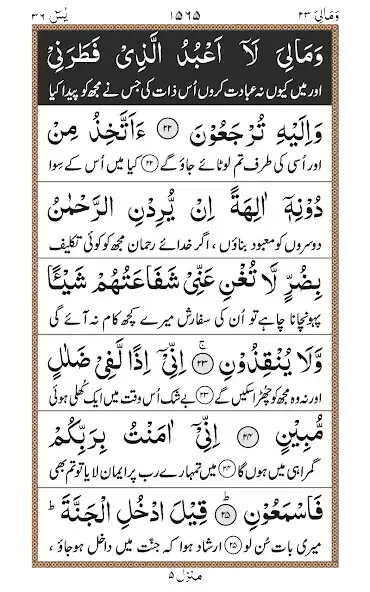 یٰسٓ ۳۶ ۱۵۶۵ وَمَالِیَ ۲۳
وَمَالِیَ لَاۤ اَعْبُدُ الَّذِیْ فَطَرَنِیْ
اور میں کیوں نہ عبادت کروں اُس ذات کی جس نے مجھ کو پیدا کیا
وَاِلَیْهِ تُرْجَعُوْنَ ۝۲۲ ءَاَتَّخِذُ مِنْ
اور اُسی کی طرف تم لوٹائے جاؤ گے ۝۲۲ کیا میں اُس کے سِوا
دُوْنِهٖۤ اٰلِهَةً اِنْ یُّرِدْنِ الرَّحْمٰنُ
دوسروں کو معبود بناؤں ، اگر خدائے رحمان مجھ کو کوئی تکلیف
بِضُرٍّ لَّا تُغْنِ عَنِّیْ شَفَاعَتُهُمْ شَیْـًٔا
پہونچانا چاہے تو اُن کی سفارش میرے کچھ کام نہ آئے گی
وَّلَا یُنْقِذُوْنِ ۝۲۳ۚ اِنِّیْۤ اِذًا لَّفِیْ ضَلٰلٍ
اور نہ وہ مجھ کو چھڑا سکیں گے ۝۲۳ بے شک اُس وقت میں ایک کُھلی ہوئی
مُّبِیْنٍ ۝۲۴ اِنِّیْۤ اٰمَنْتُ بِرَبِّكُمْ
گمراہی میں ہوں گا ۝۲۴ میں تمہارے رب پر ایمان لایا تو تم بھی
فَاسْمَعُوْنِ ۝۲۵ؕ قِیْلَ ادْخُلِ الْجَنَّةَ ؕ
میری بات سُن لو ۝۲۵ ارشاد ہوا کہ جنّت میں داخل ہو جاؤ ،
منزل ۵